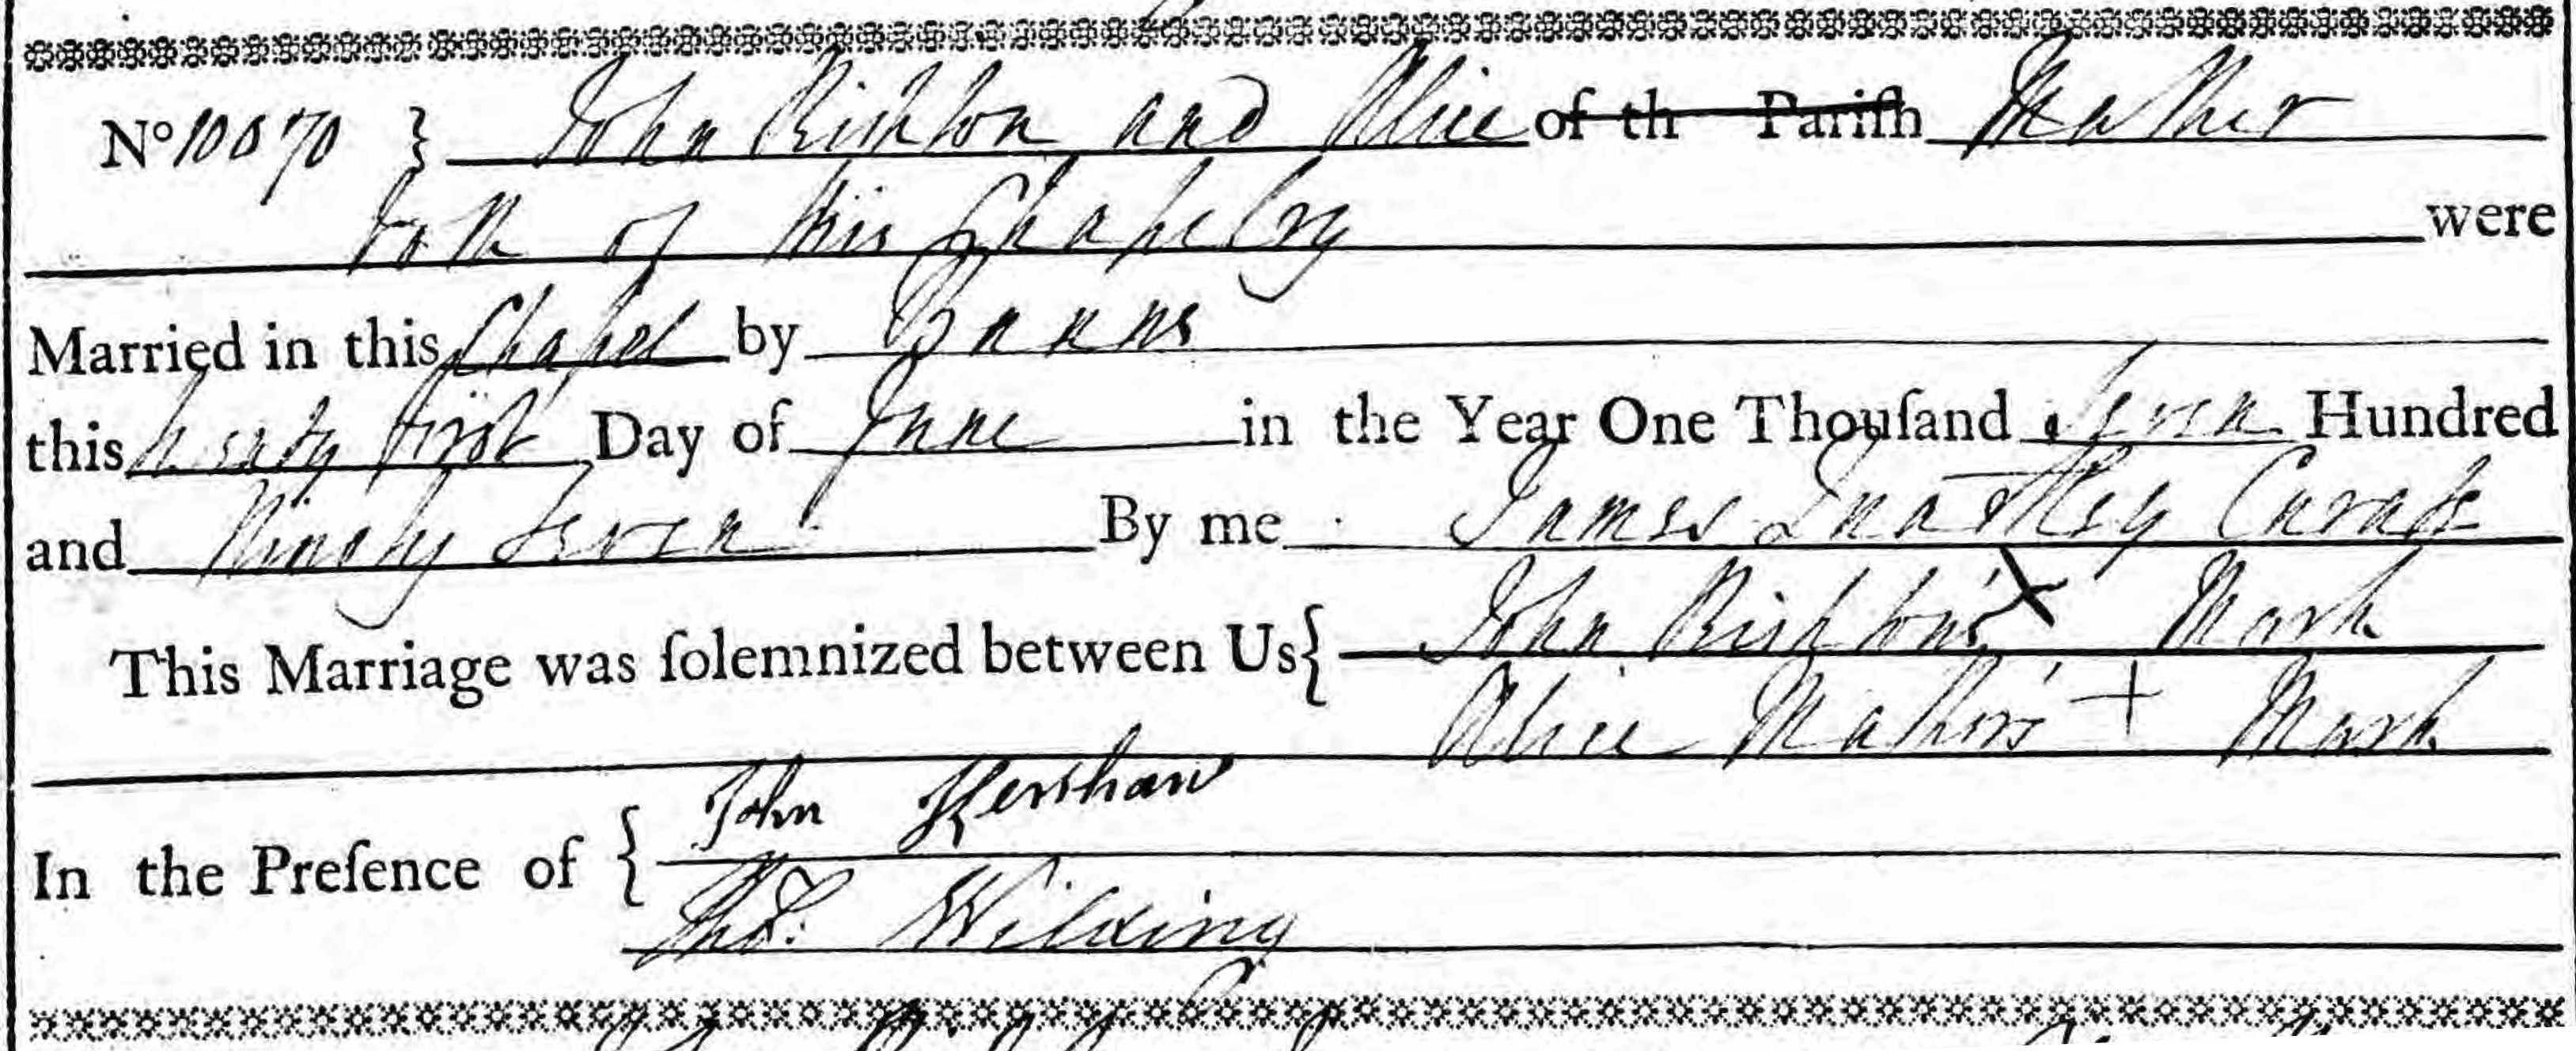 No 10070 } John Rishton and Alice of th Pariſh Mather
both of this Chapelry were
Married in this Chapel by Banns
this twenty first Day of June in the Year One Thouſand Seven Hundred
and Ninety Seven By me James Quartley Curate
This Marriage was ſolemnized between Us { John Rishton's X Mark
Alice Mather's + Mark
In the Preſence of { John Kershaw
Thos. Wilding